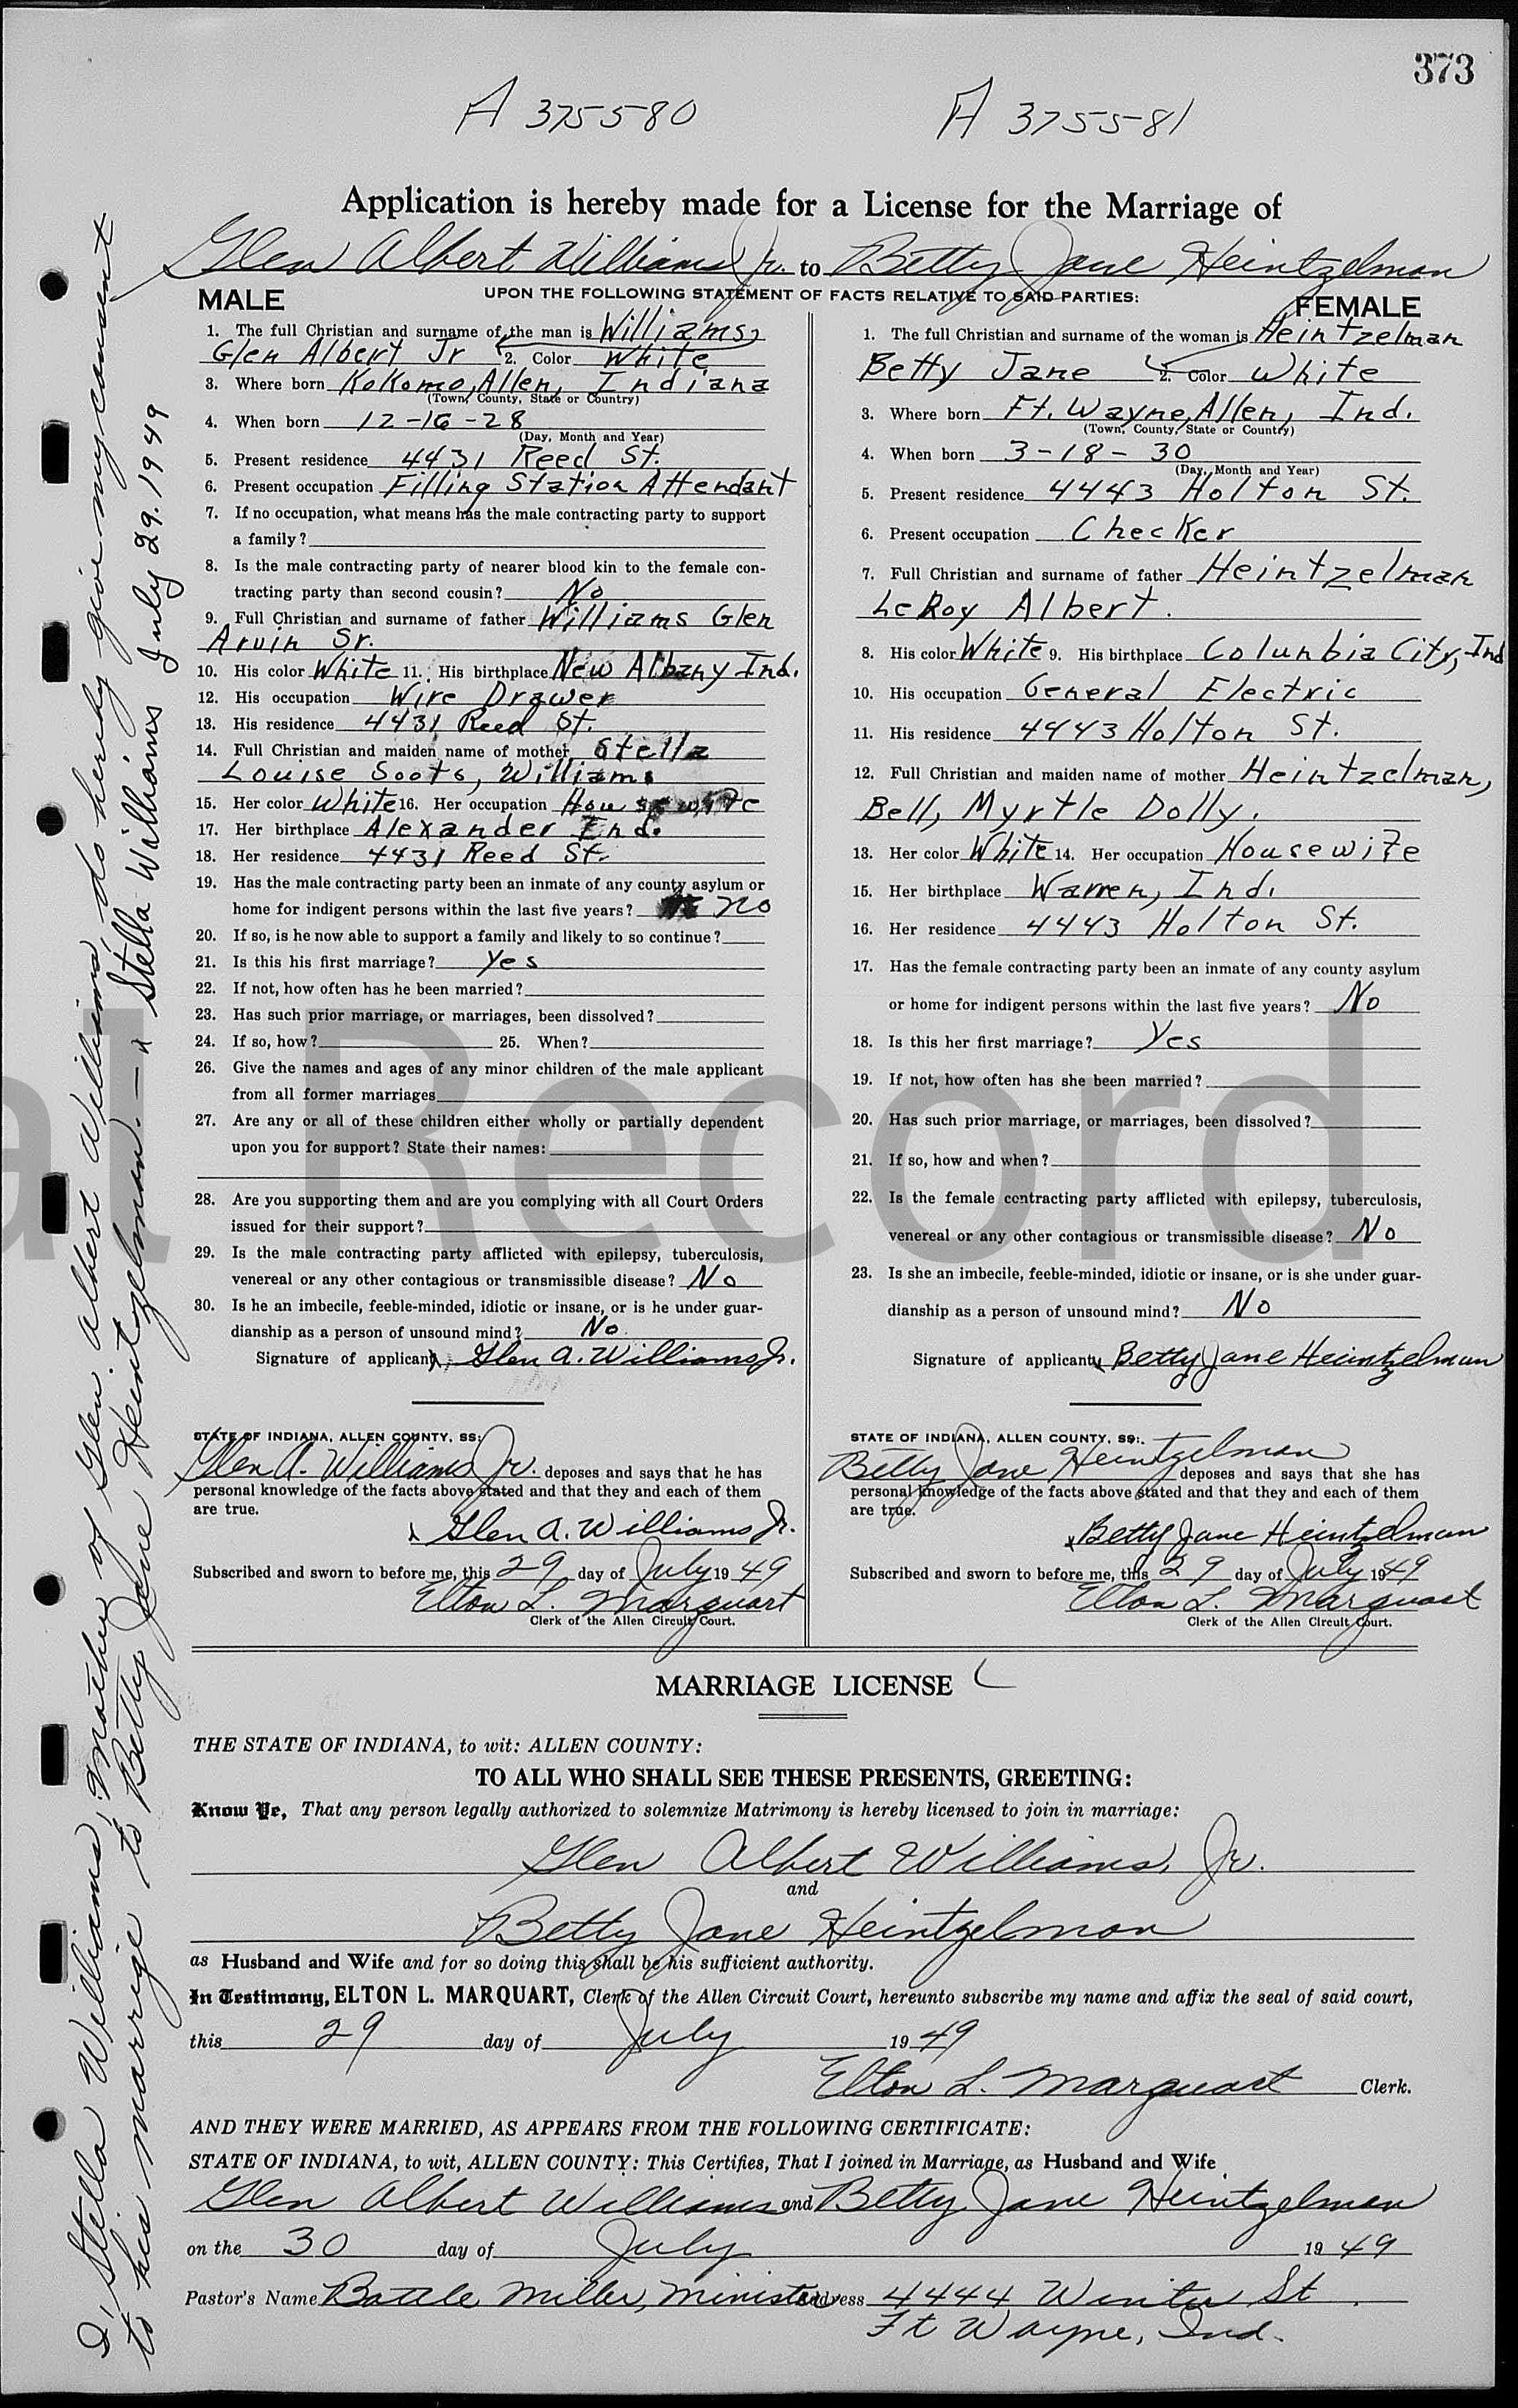 373
A 375580 A 375581
Application is hereby made for a License for the Marriage of
Glen Albert Williams Jr. to Betty Jane Heintzelman
UPON THE FOLLOWING STATEMENT OF FACTS RELATIVE TO SAID PARTIES:
MALE
1. The full Christian and surname of the man is Williams,
Glen Albert Jr 2. Color White
3. Where born Kokomo, Allen, Indiana
(Town, County, State or Country)
4. When born 12-16-28
(Day, Month and Year)
5. Present residence 4431 Reed St.
6. Present occupation Filling Station Attendant
7. If no occupation, what means has the male contracting party to support
a family?
8. Is the male contracting party of nearer blood kin to the female con-
tracting party than second cousin? No
9. Full Christian and surname of father Williams Glen
Arvin Sr.
10. His color White 11. His birthplace New Albany Ind.
12. His occupation Wire Drawer
13. His residence 4431 Reed St.
14. Full Christian and maiden name of mother Stella
Louise Soots, Williams
15. Her color White 16. Her occupation Housewife
17. Her birthplace Alexander Ind.
18. Her residence 4431 Reed St.
19. Has the male contracting party been an inmate of any county asylum or
home for indigent persons within the last five years? no
20. If so, is he now able to support a family and likely to so continue?
21. Is this his first marriage? Yes
22. If not, how often has he been married?
23. Has such prior marriage, or marriages, been dissolved?
24. If so, how? 25. When?
26. Give the names and ages of any minor children of the male applicant
from all former marriages
27. Are any or all of these children either wholly or partially dependent
upon you for support? State their names:
28. Are you supporting them and are you complying with all Court Orders
issued for their support?
29. Is the male contracting party afflicted with epilepsy, tuberculosis,
venereal or any other contagious or transmissible disease? No
30. Is he an imbecile, feeble-minded, idiotic or insane, or is he under guar-
dianship as a person of unsound mind? No
Signature of applicant x Glen A. Williams Jr.
STATE OF INDIANA, ALLEN COUNTY, SS:
Glen A. Williams Jr. deposes and says that he has
personal knowledge of the facts above stated and that they and each of them
are true.
x Glen A. Williams Jr.
Subscribed and sworn to before me, this 29 day of July 1949
Elton L. Marquart
Clerk of the Allen Circuit Court.
FEMALE
1. The full Christian and surname of the woman is Heintzelman
Betty Jane 2. Color White
3. Where born Ft. Wayne, Allen, Ind.
(Town, County, State or Country)
4. When born 3-18-30
(Day, Month and Year)
5. Present residence 4443 Holton St.
6. Present occupation Checker
7. Full Christian and surname of father Heintzelman
LeRoy Albert.
8. His color White 9. His birthplace Columbia City, Ind
10. His occupation General Electric
11. His residence 4443 Holton St.
12. Full Christian and maiden name of mother Heintzelman,
Bell, Myrtle Dolly.
13. Her color White 14. Her occupation Housewife
15. Her birthplace Warren, Ind.
16. Her residence 4443 Holton St.
17. Has the female contracting party been an inmate of any county asylum
or home for indigent persons within the last five years? No
18. Is this her first marriage? Yes
19. If not, how often has she been married?
20. Has such prior marriage, or marriages, been dissolved?
21. If so, how and when?
22. Is the female contracting party afflicted with epilepsy, tuberculosis,
venereal or any other contagious or transmissible disease? No
23. Is she an imbecile, feeble-minded, idiotic or insane, or is she under guar-
dianship as a person of unsound mind? No
Signature of applicant x Betty Jane Heintzelman
STATE OF INDIANA, ALLEN COUNTY, SS:
Betty Jane Heintzelman deposes and says that she has
personal knowledge of the facts above stated and that they and each of them
are true.
x Betty Jane Heintzelman
Subscribed and sworn to before me, this 29 day of July 1949
Elton L. Marquart
Clerk of the Allen Circuit Court.
MARRIAGE LICENSE
THE STATE OF INDIANA, to wit: ALLEN COUNTY:
TO ALL WHO SHALL SEE THESE PRESENTS, GREETING:
Know Ye, That any person legally authorized to solemnize Matrimony is hereby licensed to join in marriage:
Glen Albert Williams, Jr.
and
Betty Jane Heintzelman
as Husband and Wife and for so doing this shall be his sufficient authority.
In Testimony, ELTON L. MARQUART, Clerk of the Allen Circuit Court, hereunto subscribe my name and affix the seal of said court,
this 29 day of July 1949
Elton L. Marquart Clerk.
AND THEY WERE MARRIED, AS APPEARS FROM THE FOLLOWING CERTIFICATE:
STATE OF INDIANA, to wit, ALLEN COUNTY: This Certifies, That I joined in Marriage, as Husband and Wife
Glen Albert Williams and Betty Jane Heintzelman
on the 30 day of July 1949
Pastor's Name Battle Miller, Minister Address 4444 Winter St
Ft Wayne, Ind.
I, Stella Williams, Mother of Glen Albert Williams, do hereby give my consent
to his marrige to Betty Jane Heintzelman. — x Stella Williams July 29. 1949
al Record